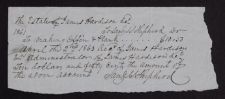 The Estate of James Hardison Decd
1861 To Sam'l S Shepherd Dr
To making Coffin & Plank $10.50
March The 2nd 1863 Recd of James Hardison
Administrator of James Hardison decd
Ten dollars and fifty cents the amount of
the above account Sam'l S Shepherd